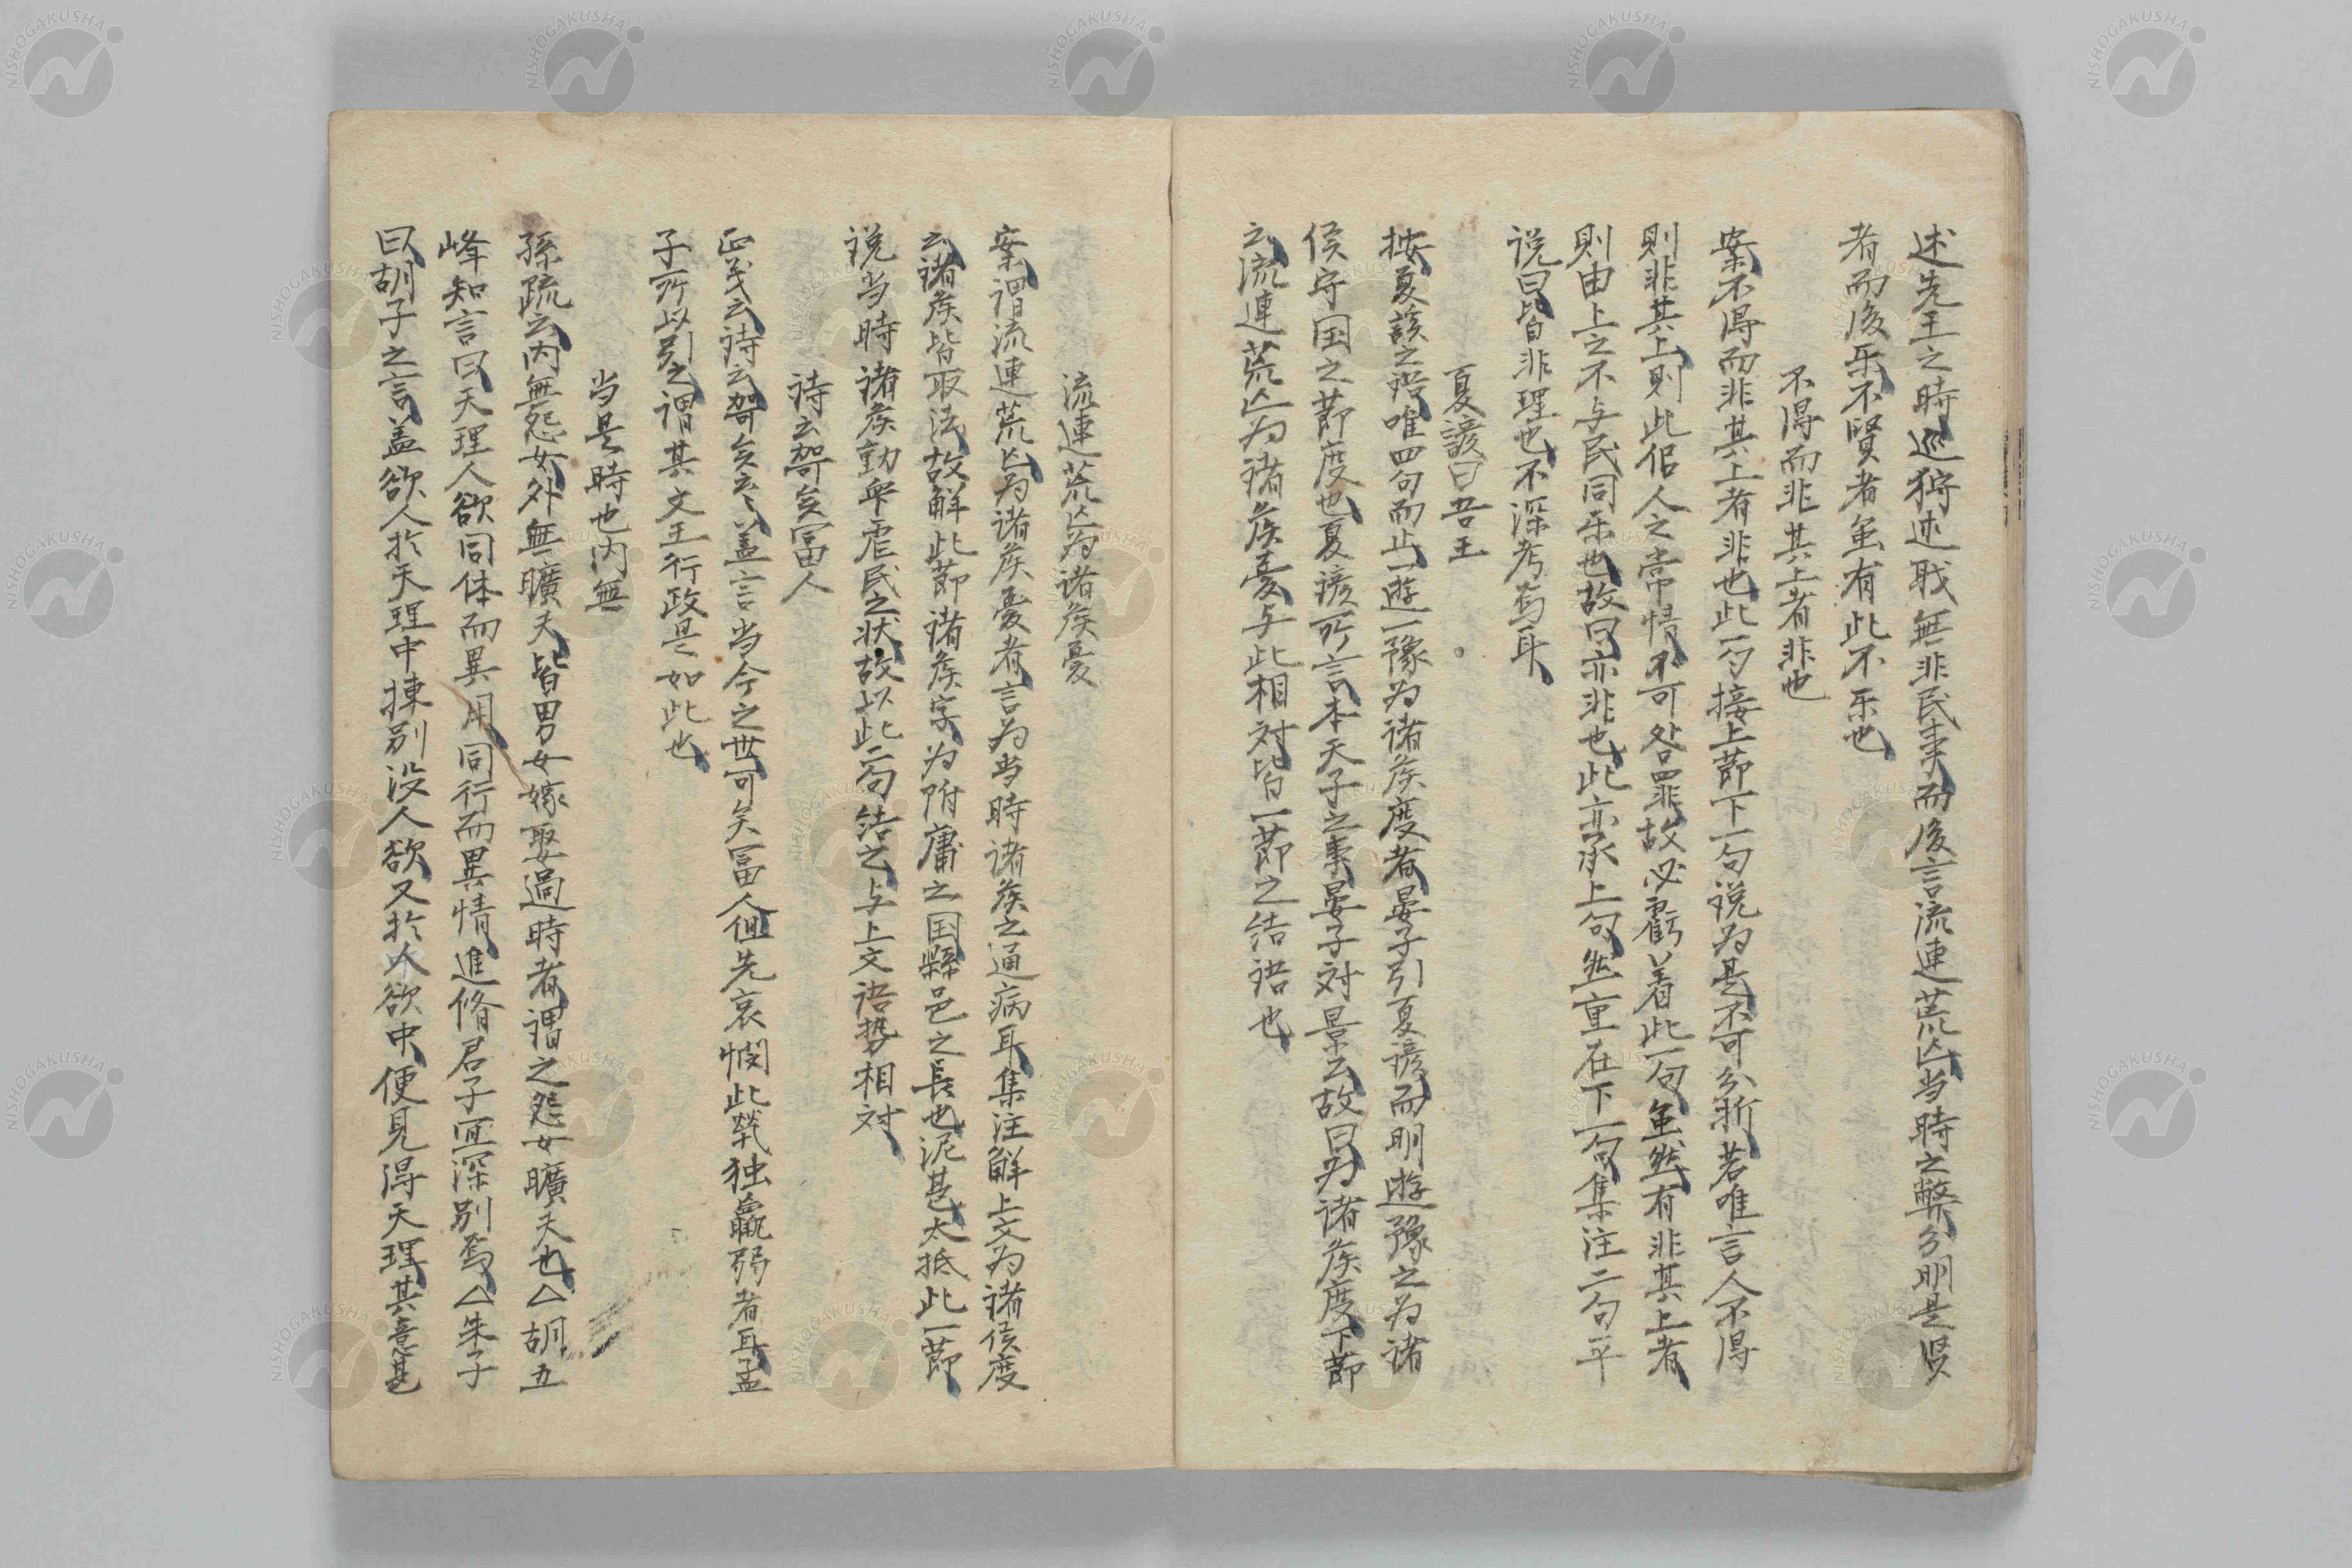 述先王之時巡狩述職無非民事而後言流連荒亾当時之弊分明是贤
者而後乐不賢者虽有此不乐也
不得而非其上者非也
案不得而非其上者非也此一句接上節下一句说为是不可分折若唯言人不得
則非其上則此侶人之常情不可咎罪故必齶着此一句虽然有非其上者
則由上之不与民同乐也故曰亦非也此亦承上句然重在下一句集注二句平
说曰皆非理也不深考焉耳
夏諺曰吾王
按夏諺之语唯四句而止一遊一豫为诸侯度者晏子引夏諺而明遊豫之为诸
侯守国之節度也夏諺所言本天子之事晏子対景云故曰为诸侯度下節
云流連荒亾为诸侯憂与此相対皆一節之结语也
流連荒亾为诸侯憂
案谓流連荒亾为诸侯憂者言为当時诸侯之通病耳集注解上文为诸侯度
云诸侯皆取法故解此節诸侯字为附庸之国縣邑之長也泥甚太抵此一節
说当時诸侯動衆虐民之状故以此二句结之与上文语势相対
诗云哿矣冨人
正義云诗云哿矣云〻盖言当今之世可矣冨人但先哀憫此煢独羸弱者耳孟
子所以引之谓其文王行政是如此也
当是時也内無
孫疏云内無怨女外無曠夫皆男女嫁娶過時者谓之怨女曠夫也△胡五
峰知言曰天理人欲同体而異用同行而異情進脩君子宜深别焉△朱子
曰胡子之言盖欲人於天理中揀别没人欲又於人欲中便見得天理其意甚
NISHOGAKUSHA